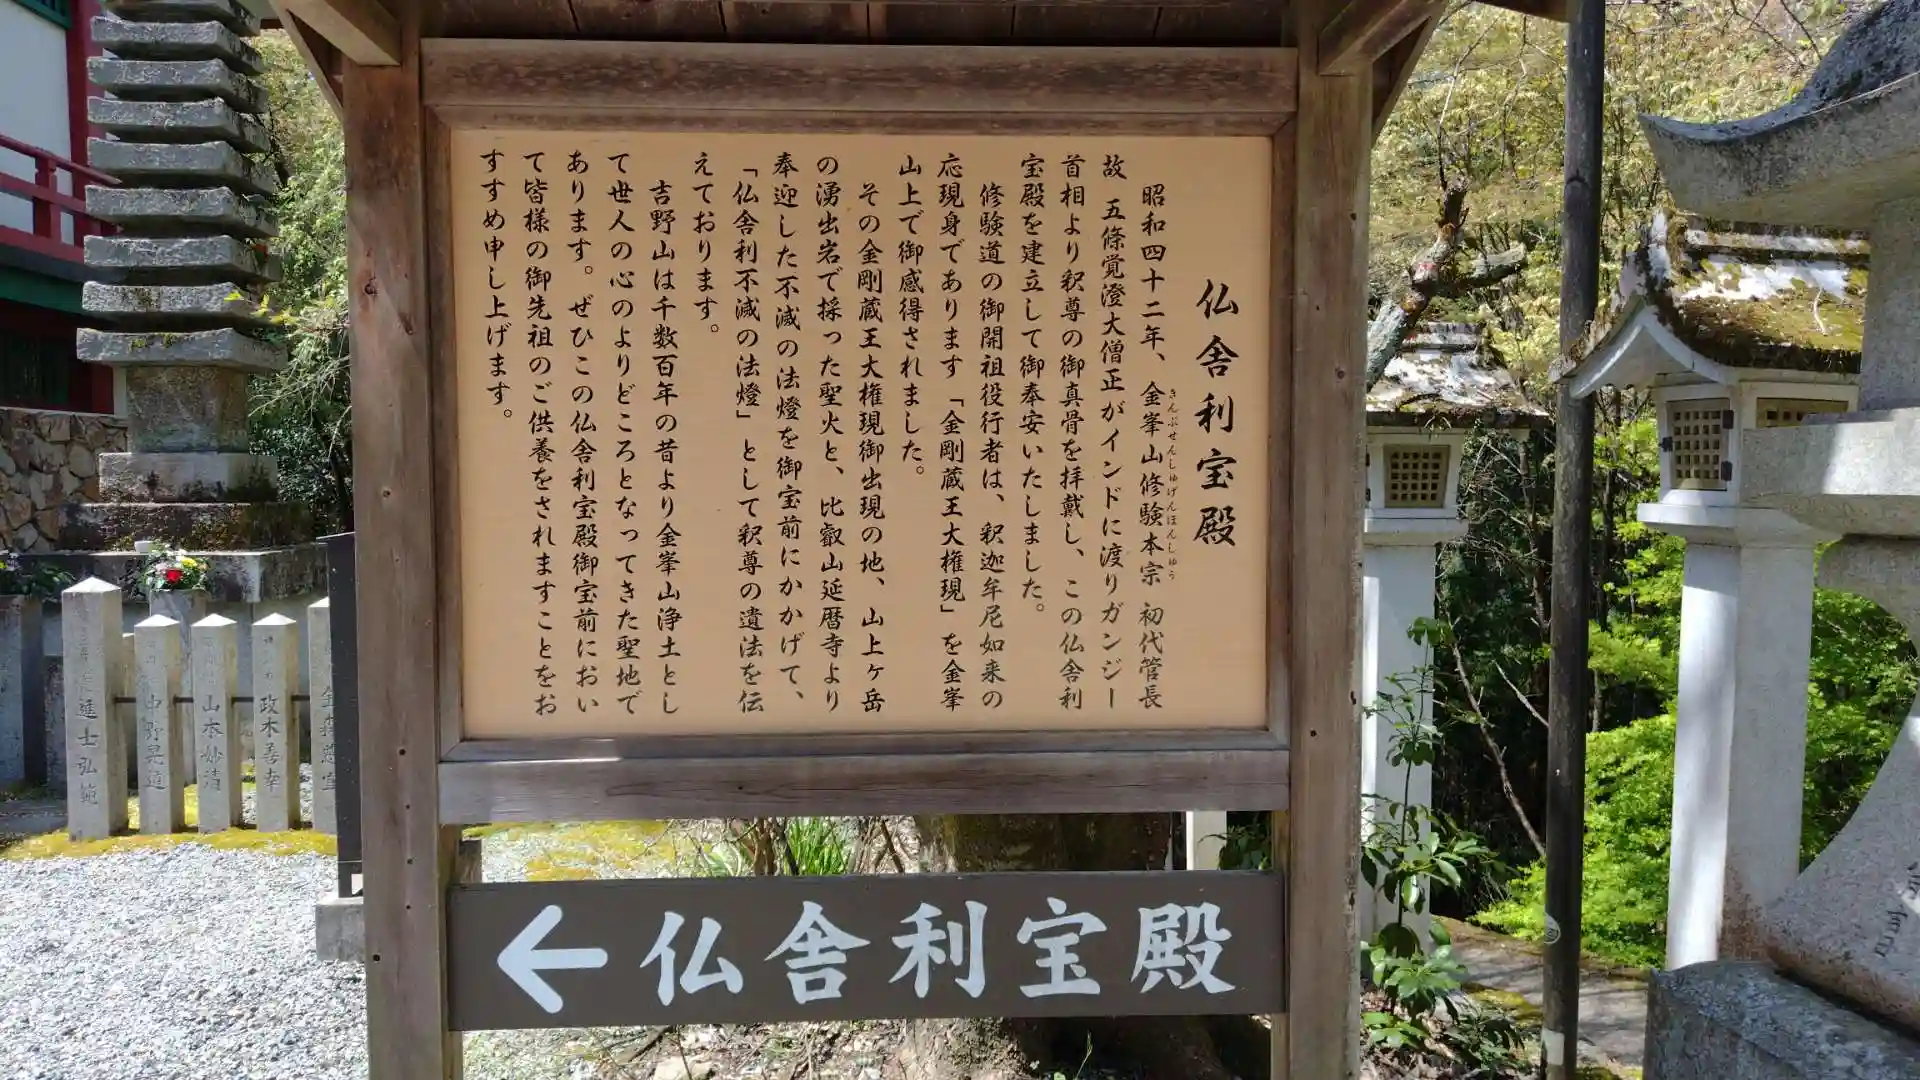 仏舎利宝殿
昭和四十二年、金峯山修験本宗 初代管長
きんぷせんしゅげんほんしゅう
故 五條覚澄大僧正がインドに渡りガンジー
首相より釈尊の御真骨を拝戴し、この仏舎利
宝殿を建立して御奉安いたしました。
修験道の御開祖役行者は、釈迦牟尼如来の
応現身であります「金剛蔵王大権現」を金峯
山上で御感得されました。
その金剛蔵王大権現御出現の地、山上ヶ岳
の湧出岩で採った聖火と、比叡山延暦寺より
奉迎した不滅の法燈を御宝前にかかげて、
「仏舎利不滅の法燈」として釈尊の遺法を伝
えております。
吉野山は千数百年の昔より金峯山浄土とし
て世人の心のよりどころとなってきた聖地で
あります。ぜひこの仏舎利宝殿御宝前におい
て皆様の御先祖のご供養をされますことをお
すすめ申し上げます。
←仏舎利宝殿
進士弘範
中野晃道
山本妙清
政木善幸